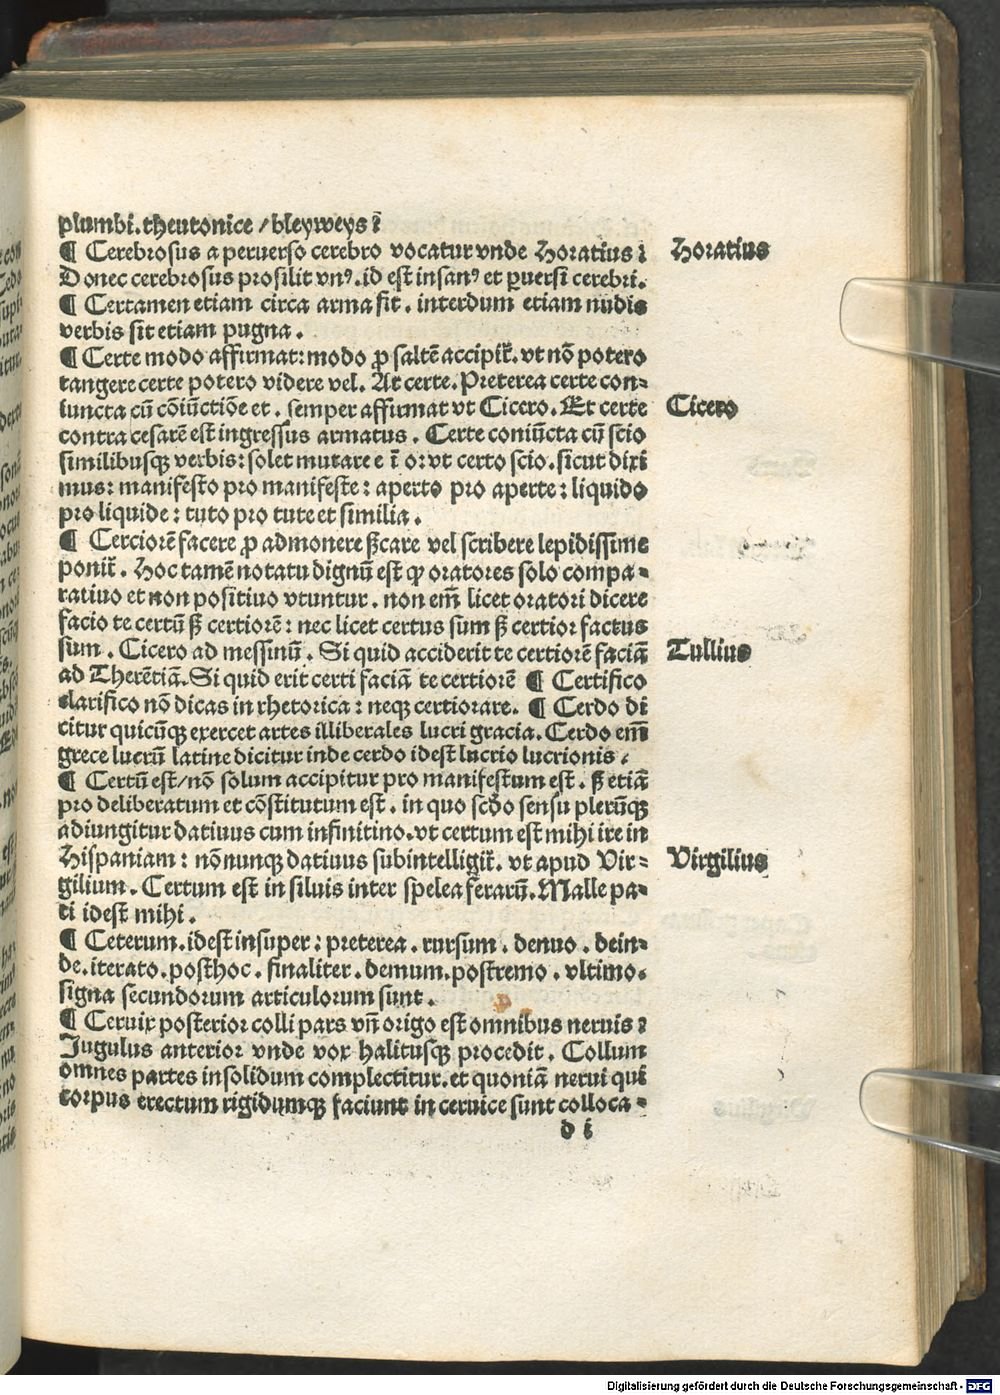 plumbi. theutonice / bleyweys ⁊
¶ Cerebrosus a peruerso cerebro vocatur vnde Horatius ⁊
Horatius
Donec cerebrosus prosilit vnꝰ. id est insanꝰ et ꝑuersi cerebri.
¶ Certamen etiam circa arma fit. interdum etiam nudis
verbis sit etiam pugna.
¶ Certe modo affirmat: modo ꝓ saltē accipit᷑. vt nō potero
tangere certe potero videre vel. At certe. Preterea certe con-
iuncta cū cōiūctiōe et. semper affirmat vt Cicero. Et certe
Cicero
contra cesarē est ingressus armatus. Certe coniūcta cū scio
similibusqꝫ verbis: solet mutare e ī o: vt certo scio. sicut dixi
mus: manifesto pro manifeste: aperto pro aperte: liquido
pro liquide: tuto pro tute et similia.
¶ Cerciorē facere ꝓ admonere ẜcare vel scribere lepidissime
ponit᷑. Hoc tamē notatu dignū est ꝙ oratores solo compa-
ratiuo et non positiuo vtuntur. non em̄ licet oratori dicere
facio te certū ẜ certiorē: nec licet certus sum ẜ certior factus
sum. Cicero ad messinū. Si quid acciderit te certiorē faciā
Tullius
ad Therētiā. Si quid erit certi faciā te certiorē ¶ Certifico
clarifico nō dicas in rhetorica: neqꝫ certiorare. ¶ Cerdo di
citur quicūqꝫ exercet artes illiberales lucri gracia. Cerdo em̄
grece lucrū latine dicitur inde cerdo idest lucrio lucrionis.
¶ Certū est / nō solum accipitur pro manifestum est. ẜ etiā
pro deliberatum et cōstitutum est. in quo scd̄o sensu plerūqꝫ
adiungitur datiuus cum infinitino. vt certum est mihi ire in
Hispaniam: nōnunqꝫ datiuus subintelligit᷑. vt apud Vir-
Virgilius
gilium. Certum est in siluis inter spelea ferarū. Malle pa-
ti idest mihi.
¶ Ceterum. idest insuper: preterea. rursum. denuo. dein-
de. iterato. posthoc. finaliter. demum. postremo. vltimo.
signa secundorum articulorum sunt.
¶ Ceruix posterior colli pars vn̄ origo est omnibus neruis ⁊
Jugulus anterior vnde vox halitusqꝫ procedit. Collum
omnes partes insolidum complectitur. et quoniā nerui qui
corpus erectum rigidumqꝫ faciunt in ceruice sunt colloca-
d i
Digitalisierung gefördert durch die Deutsche Forschungsgemeinschaft - DFG